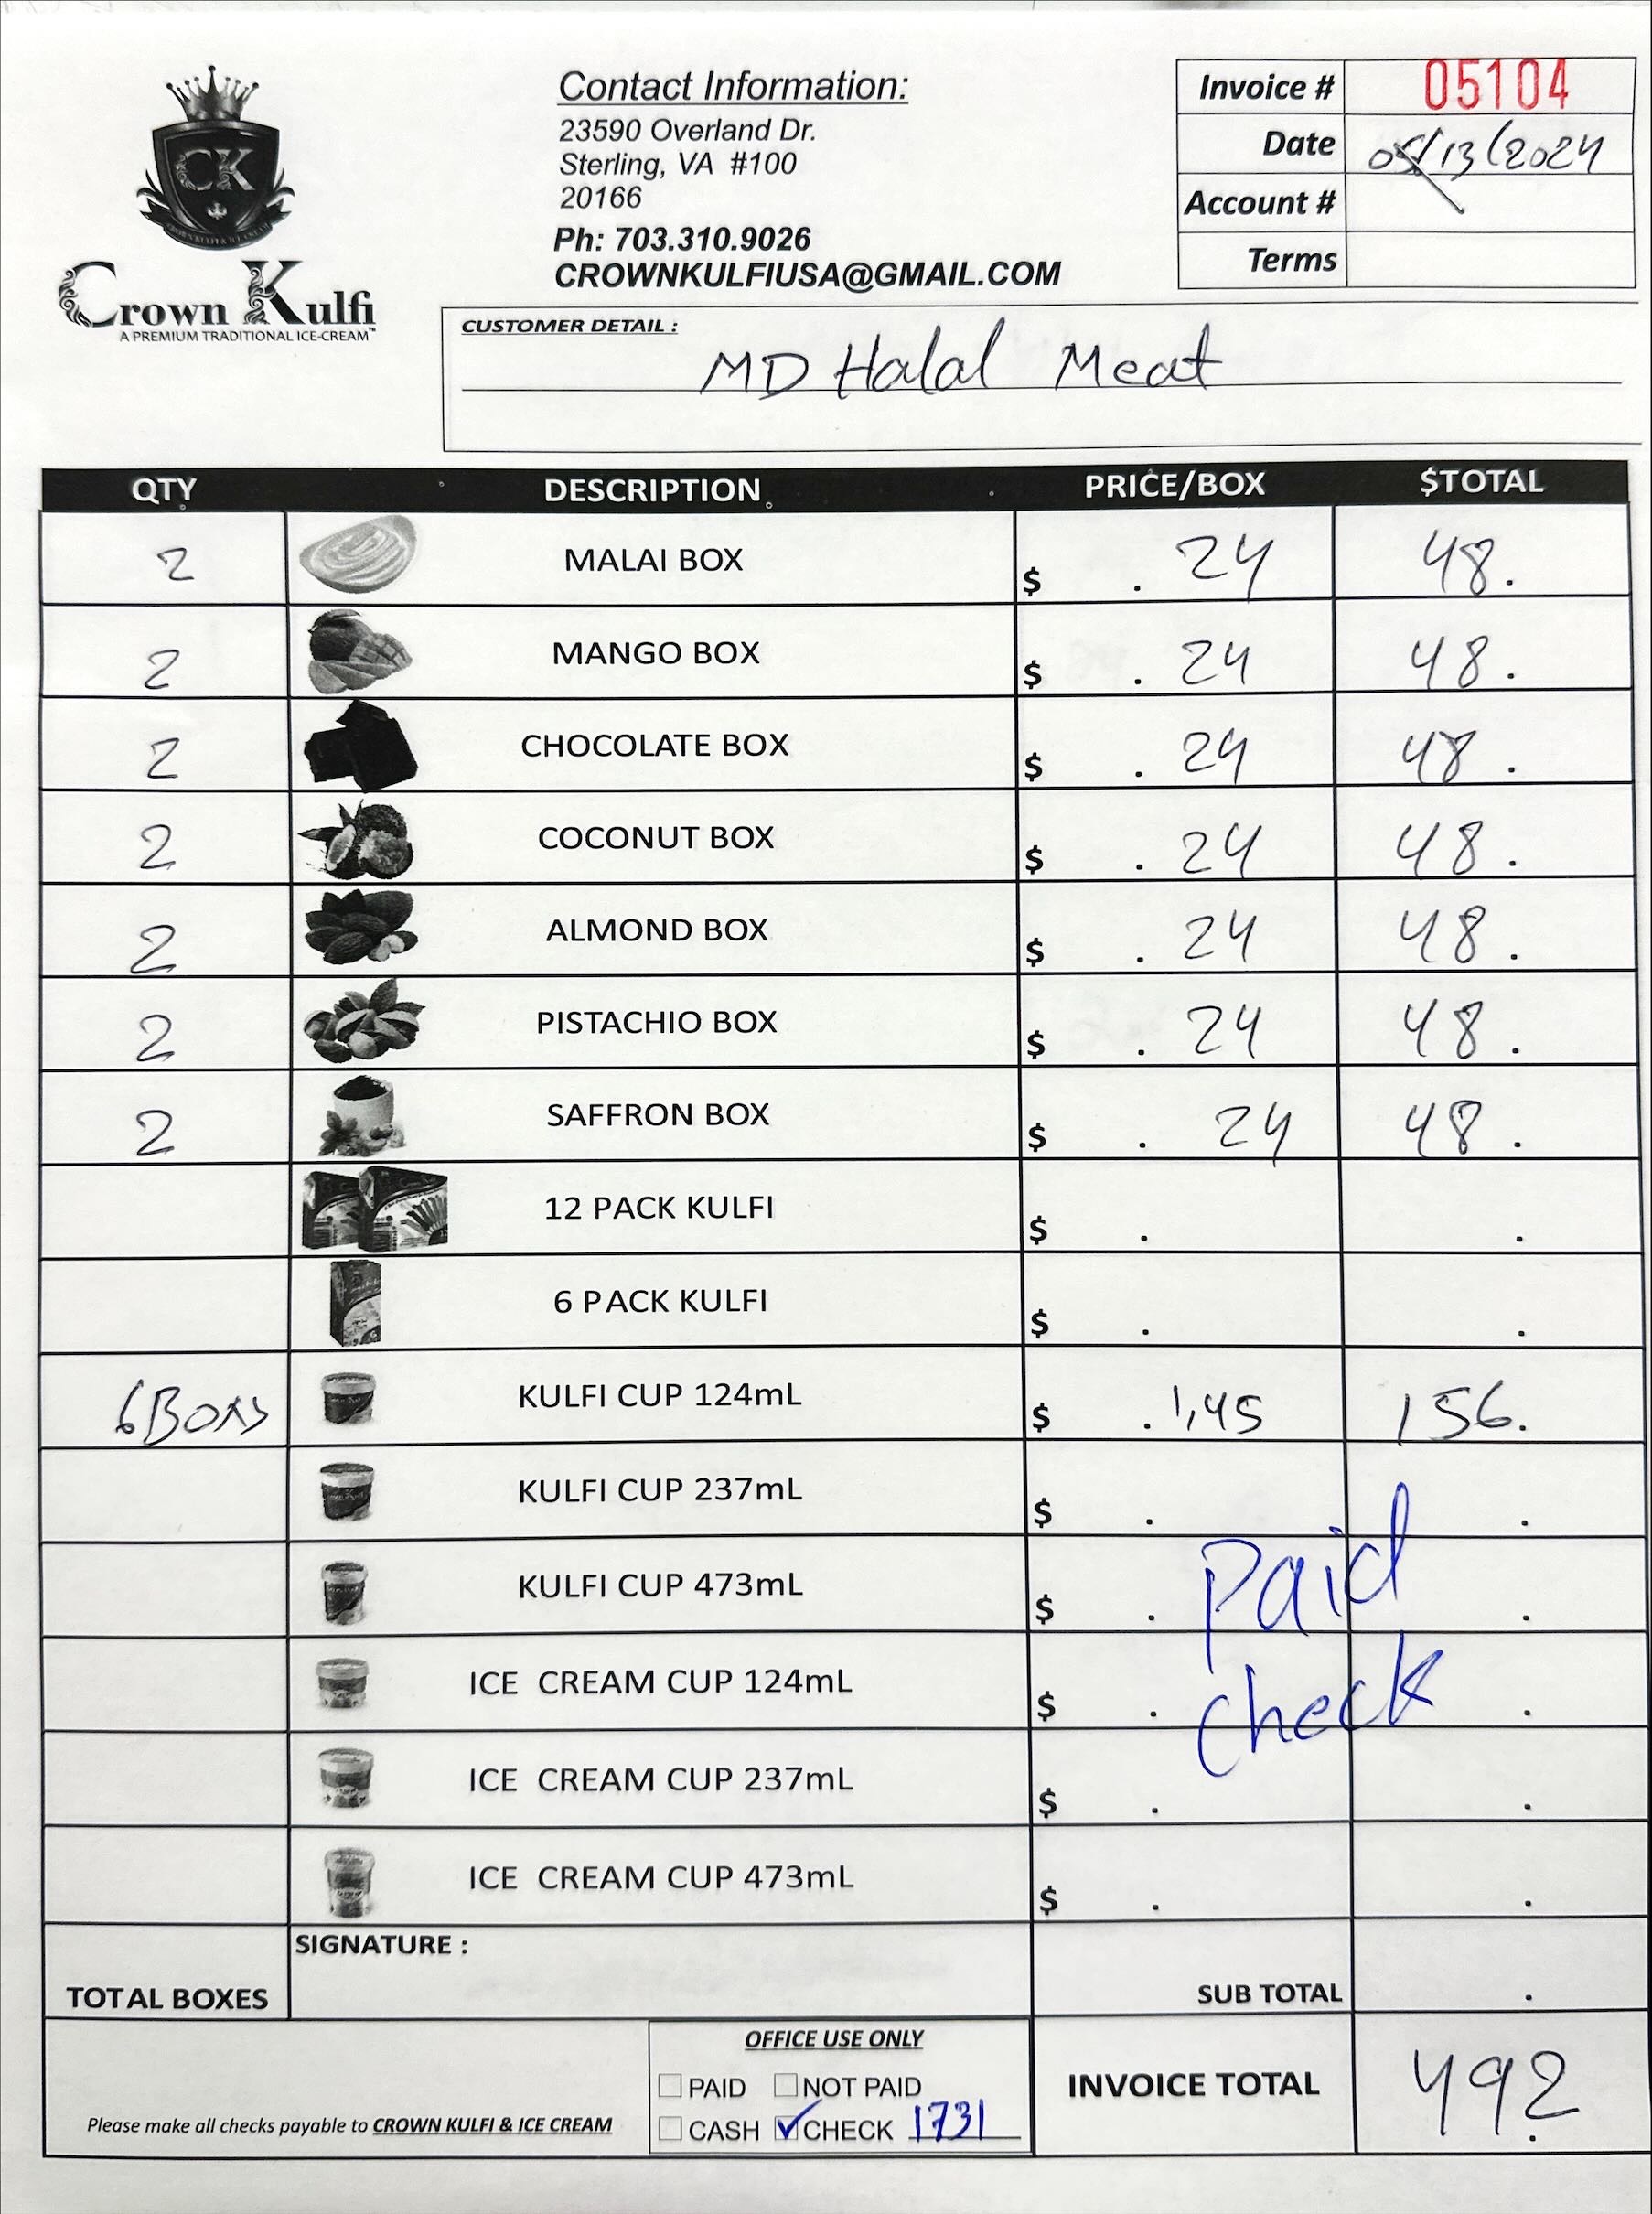 CK
Crown Kulfi
A PREMIUM TRADITIONAL ICE-CREAM™
Contact Information:
23590 Overland Dr.
Sterling, VA #100
20166
Ph: 703.310.9026
CROWNKULFIUSA@GMAIL.COM
Invoice # 05104
Date 05/13/2024
Account #
Terms
CUSTOMER DETAIL :
MD Halal Meat
QTY DESCRIPTION PRICE/BOX $TOTAL
2 MALAI BOX $ . 24 48.
2 MANGO BOX $ . 24 48.
2 CHOCOLATE BOX $ . 24 48.
2 COCONUT BOX $ . 24 48.
2 ALMOND BOX $ . 24 48.
2 PISTACHIO BOX $ . 24 48.
2 SAFFRON BOX $ . 24 48.
12 PACK KULFI $ . .
6 PACK KULFI $ . .
6 KULFI CUP 124mL $ . 1,45 156.
KULFI CUP 237mL $ . .
KULFI CUP 473mL $ . Paid .
ICE CREAM CUP 124mL $ . check .
ICE CREAM CUP 237mL $ . .
ICE CREAM CUP 473mL $ . .
SIGNATURE :
TOTAL BOXES SUB TOTAL .
OFFICE USE ONLY
PAID NOT PAID
CASH CHECK 1731
Please make all checks payable to CROWN KULFI & ICE CREAM
INVOICE TOTAL 492.